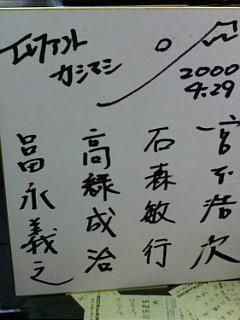 エレファント
カシマシ
2000
4.29
宮本浩次
石森敏行
高緑成治
冨永義之